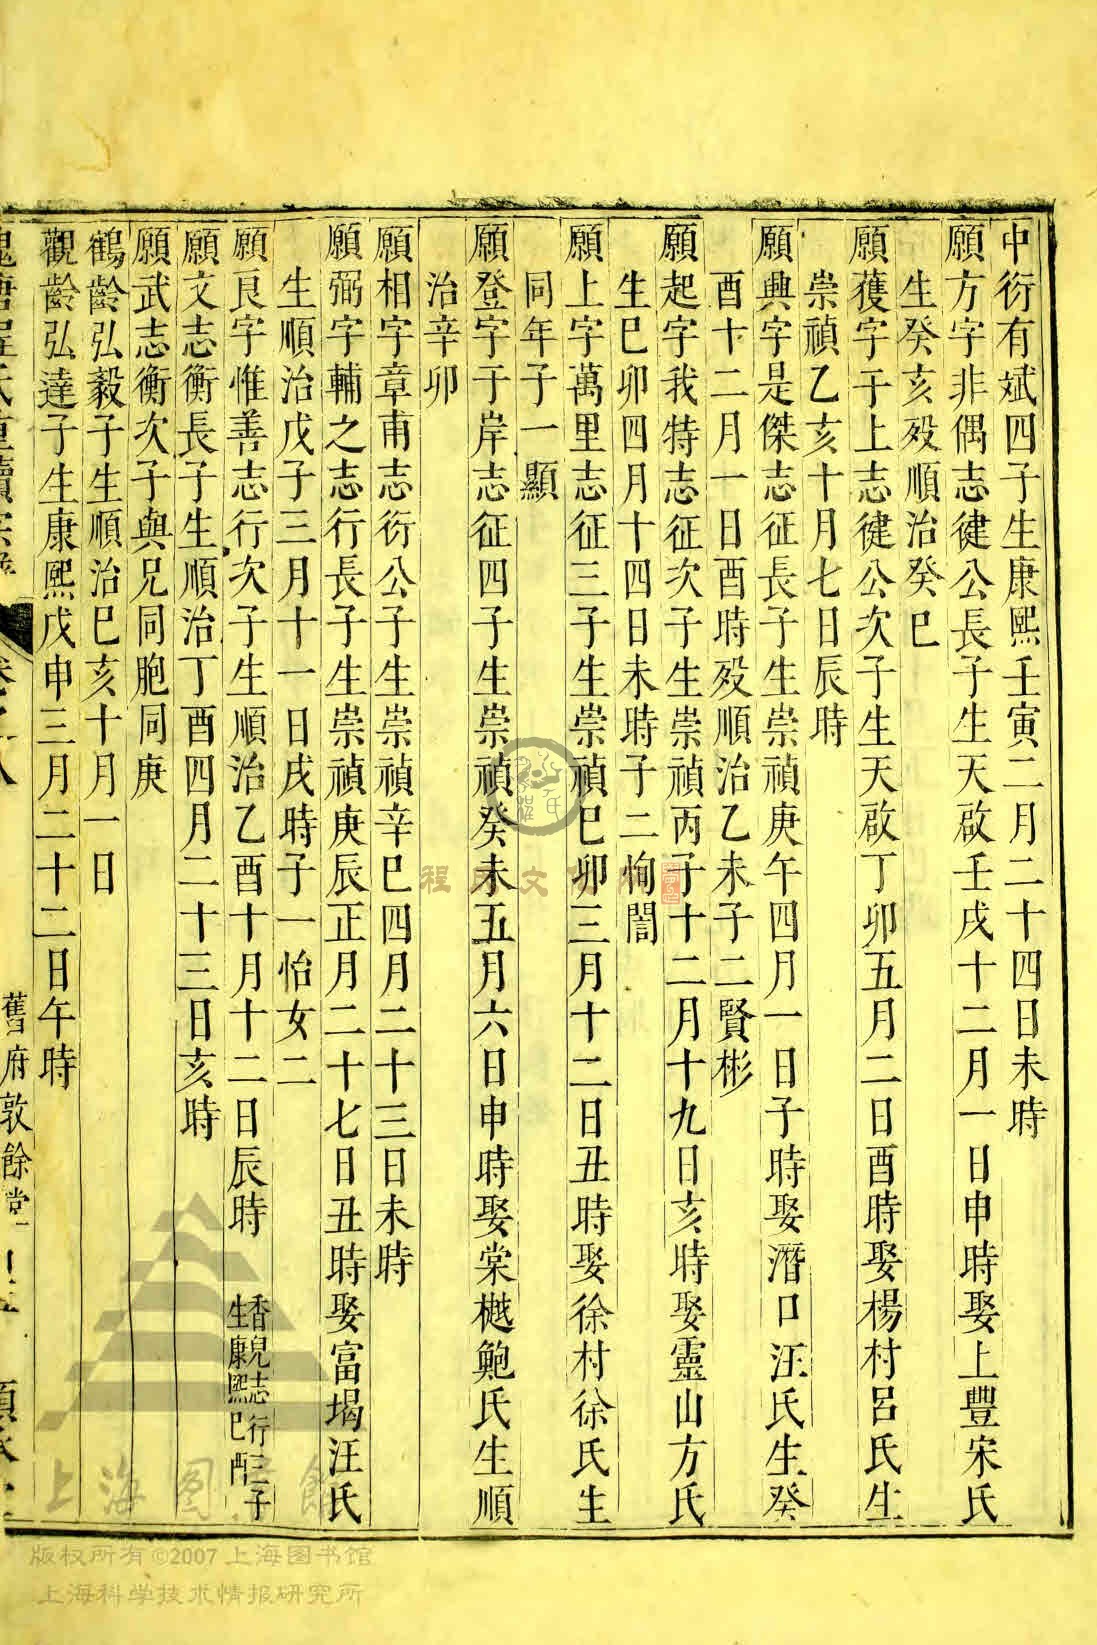 中衍有斌四子生康熙壬寅二月二十四日未時
願方字非偶志徤公長子生天啟壬戌十二月一日申時娶上豐宋氏
生癸亥殁順治癸巳
願獲字于上志徤公次子生天啟丁卯五月二日酉時娶楊村呂氏生
崇禎乙亥十月七日辰時
願興字是傑志征長子生崇禎庚午四月一日子時娶潛口汪氏生癸
酉十二月一日酉時殁順治乙未子二賢彬
願起字我特志征次子生崇禎丙子十二月十九日亥時娶靈山方氏
生巳卯四月十四日未時子二恂誾
願上字萬里志征三子生崇禎巳卯三月十二日丑時娶徐村徐氏生
同年子一顯
願登字于岸志征四子生崇禎癸未五月六日申時娶棠樾鮑氏生順
治辛卯
願相字章甫志衍公子生崇禎辛巳四月二十三日未時
願弼字輔之志行長子生崇禎庚辰正月二十七日丑時娶富堨汪氏
生順治戊子三月十一日戌時子一怡女二
願良字惟善志行次子生順治乙酉十月十二日辰時
香兒志行三子
生康熙巳酉
願文志衡長子生順治丁酉四月二十三日亥時
願武志衡次子與兄同胞同庚
鶴齡弘毅子生順治巳亥十月一日
觀齡弘達子生康熙戊申三月二十二日午時
舊府敦餘堂
程氏文化
上海图書館
版权所有©2007上海图书馆
上海科学技术情报研究所